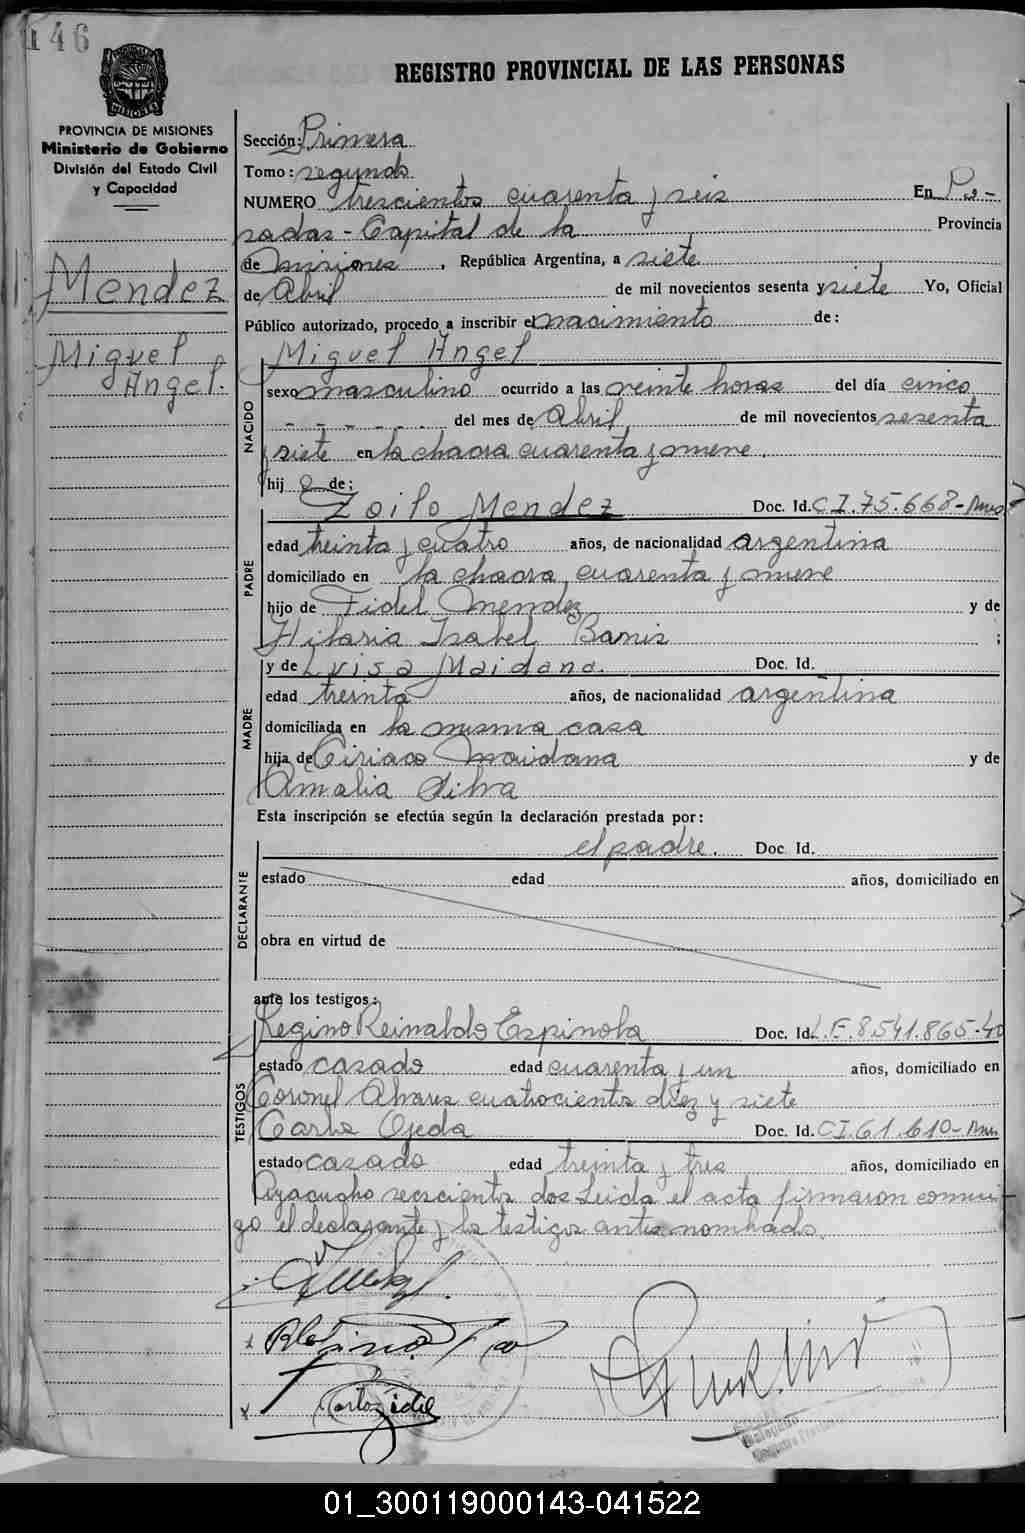 146
REGISTRO PROVINCIAL DE LAS PERSONAS
PROVINCIA DE MISIONES
Ministerio de Gobierno
División del Estado Civil
y Capacidad
Mendez
Miguel
Angel.
Sección: Primera
Tomo: segundo.
NUMERO trescientos cuarenta y seis En Po-
sadas - Capital de la Provincia
de Misiones, República Argentina, a siete
de Abril de mil novecientos sesenta y siete Yo, Oficial
Público autorizado, procedo a inscribir el nacimiento de:
Miguel Angel
NACIDO
sexo masculino ocurrido a las veinte horas del día cinco
- - - - - del mes de Abril de mil novecientos sesenta
y siete en la chacra cuarenta y nueve.
hijo de:
PADRE
Zoilo Mendez Doc. Id. C.I. 75.668-Mnes
edad treinta y cuatro años, de nacionalidad argentina
domiciliado en la chacra cuarenta y nueve
hijo de Fidel Mendez y de
Hilaria Isabel ;
MADRE
y de Luisa Maidana. Doc. Id.
edad treinta años, de nacionalidad argentina
domiciliada en la misma casa
hija de Ciriaco Maidana y de
Amalia Silva
Esta inscripción se efectúa según la declaración prestada por:
DECLARANTE
el padre. Doc. Id.
estado edad años, domiciliado en
obra en virtud de
ante los testigos:
TESTIGOS
Regino Reinaldo Espinola Doc. Id. L.E. 8.541.865-40
estado casado edad cuarenta y un años, domiciliado en
Coronel Alvares cuatrocientos diez y siete
Carlos Ojeda Doc. Id. C.I. 61.610-Mnes
estado casado edad treinta y tres años, domiciliado en
Ayacucho dos Leida el acta firmaron conmi-
go el declarante y los testigos antes nombrados.
Delegado
01_300119000143-041522